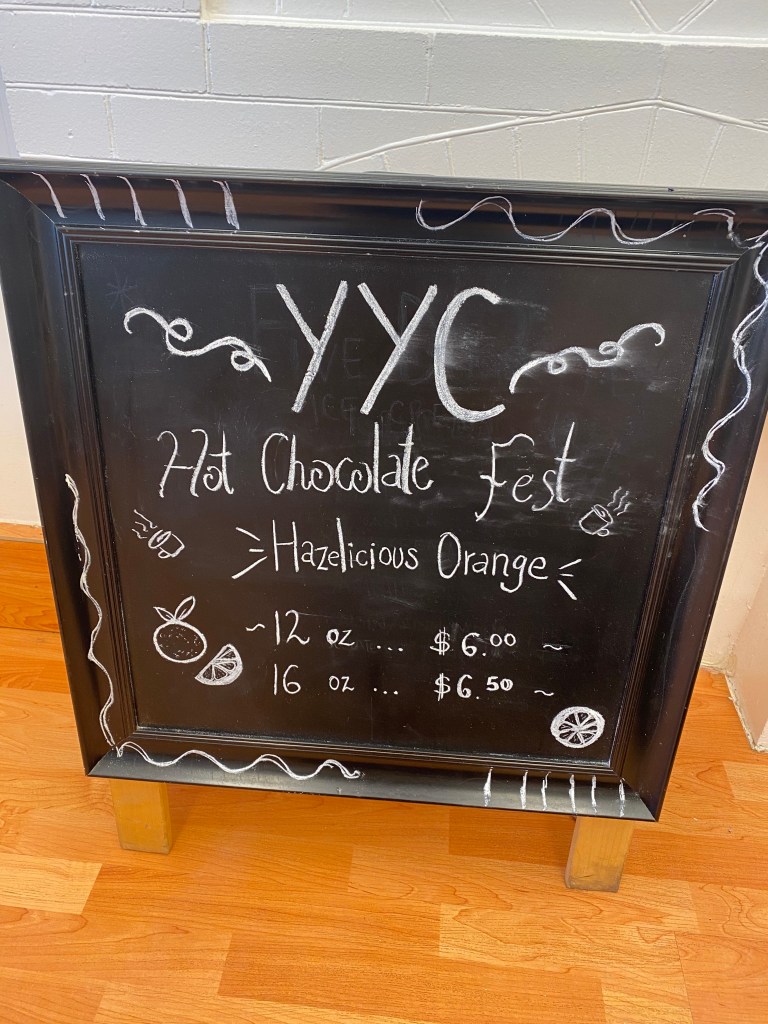 YYC
Hot Chocolate Fest
Hazelicious Orange
~12 oz ... $6.00 ~
16 oz ... $6.50 ~